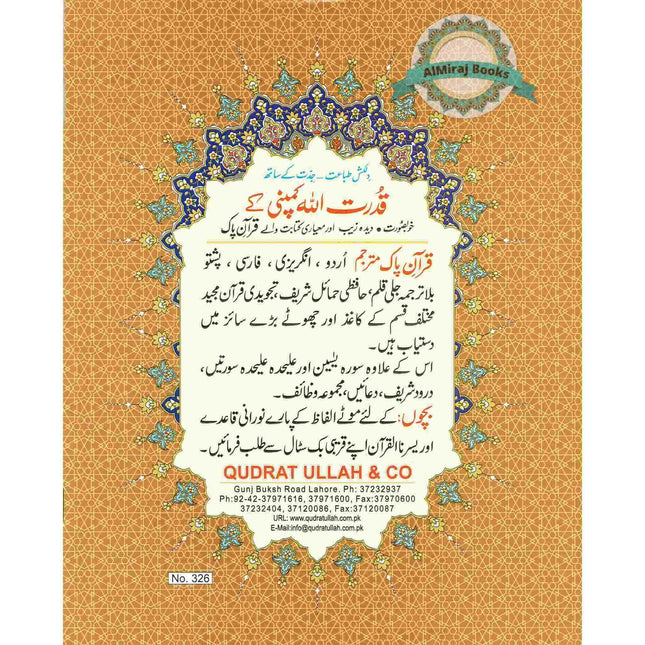 AlMiraj Books
دلکش طباعت ۔۔ جدّت کے ساتھ
قُدرت اللہ کمپنی کے
خوبصورت • دیدہ زیب اور معیاری کتابت والے قرآن پاک
قرآن پاک مترجم اُردو ، انگریزی ، فارسی ، پشتو
بلا ترجمہ جلی قلم، حافظی حمائل شریف، تجویدی قرآن مجید
مختلف قسم کے کاغذ اور چھوٹے بڑے سائز میں
دستیاب ہیں۔
اس کے علاوہ سورہ یٰسین اور علیحدہ علیحدہ سورتیں،
درود شریف، دعائیں، مجموعہ وظائف۔
بچوں: کے لئے موٹے الفاظ کے پارے نورانی قاعدے
اور یسرنا القرآن اپنے قریبی بک سٹال سے طلب فرمائیں۔
QUDRAT ULLAH & CO
Gunj Buksh Road Lahore. Ph: 37232937
Ph:92-42-37971616, 37971600, Fax:37970600
37232404, 37120086, Fax:37120087
URL: www.qudratullah.com.pk
E-Mail:info@qudratullah.com.pk
No. 326